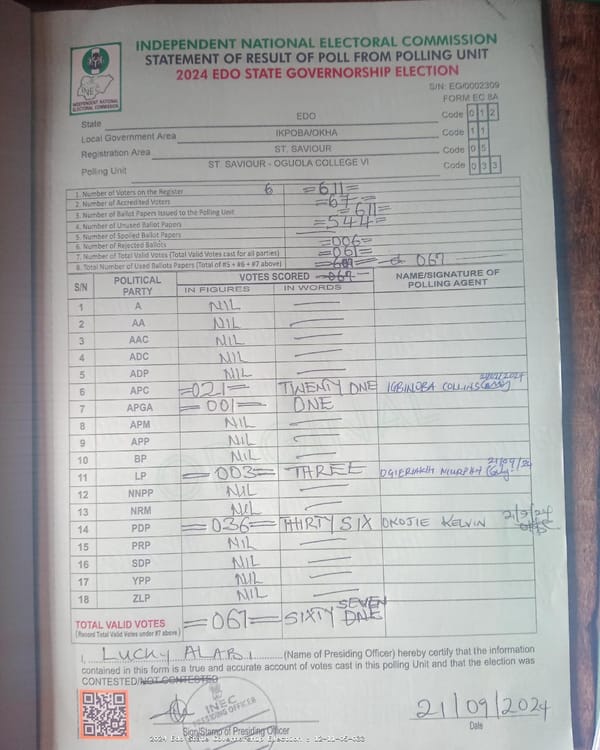 INDEPENDENT NATIONAL ELECTORAL COMMISSION
STATEMENT OF RESULT OF POLL FROM POLLING UNIT
2024 EDO STATE GOVERNORSHIP ELECTION
S/N: EG/0002309
FORM EC 8A
INEC
INDEPENDENT NATIONAL ELECTORAL COMMISSION
State EDO Code 0 1 2
Local Government Area IKPOBA/OKHA Code 1 1
Registration Area ST. SAVIOUR Code 0 5
Polling Unit ST. SAVIOUR - OGUOLA COLLEGE VI Code 0 3 3
1. Number of Voters on the Register 6 =611=
2. Number of Accredited Voters =67=
3. Number of Ballot Papers Issued to the Polling Unit =611=
4. Number of Unused Ballot Papers =544=
5. Number of Spoiled Ballot Papers
6. Number of Rejected Ballots =006=
7. Number of Total Valid Votes (Total Valid Votes cast for all parties) =061=
8. Total Number of Used Ballots Papers (Total of #5 + #6 + #7 above) 067
S/N POLITICAL PARTY VOTES SCORED 067 NAME/SIGNATURE OF POLLING AGENT
IN FIGURES IN WORDS
1 A NIL
2 AA NIL
3 AAC NIL
4 ADC NIL
5 ADP NIL
6 APC =021= TWENTY ONE IGBINOBA COLLINS
7 APGA =001= ONE
8 APM NIL
9 APP NIL
10 BP NIL
11 LP =003= THREE MURPHY 21/09/24
12 NNPP NIL
13 NRM NIL
14 PDP =036= THIRTY SIX OKOJIE KELVIN 21/9/24
15 PRP NIL
16 SDP NIL
17 YPP NIL
18 ZLP NIL
TOTAL VALID VOTES =067= SIXTY SEVEN ONE
(Record Total Valid Votes under #7 above)
I, LUCKY ALABI (Name of Presiding Officer) hereby certify that the information
contained in this form is a true and accurate account of votes cast in this polling Unit and that the election was
CONTESTED/NOT CONTESTED
INEC
PRESIDING OFFICER
21/09/2024
Sign/Stamp of Presiding Officer Date
2024 Edo State Governorship Election : 12-11-05-033